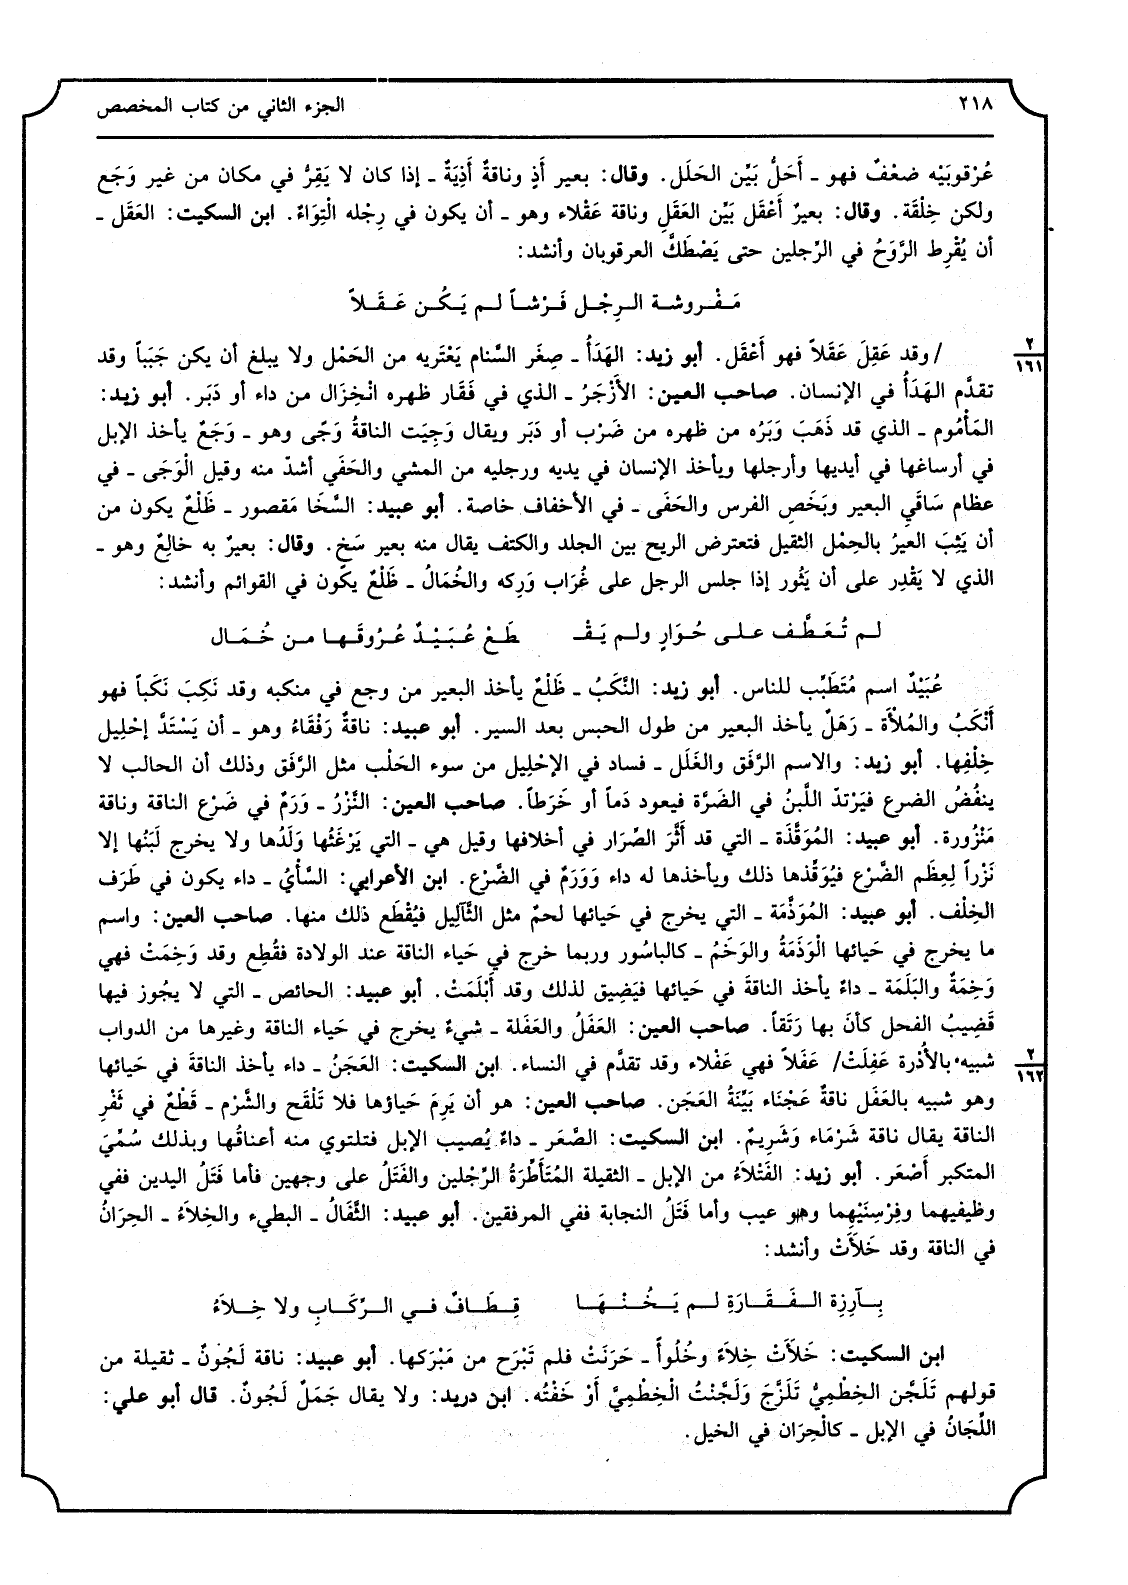 ٢١٨ الجزء الثاني من كتاب المخصص
عُرْقوبَيْه ضعْفٌ فهو ـ أَحَلُّ بَيِّن الحَلَل. وقال: بعير أَذٍ وناقةٌ أَذِيَةٌ ـ إذا كان لا يَقِرُّ في مكان من غير وَجَع
ولكن خِلْقَة. وقال: بعيرٌ أَعْقَل بَيِّن العَقَلِ وناقة عَقْلاء وهو ـ أن يكون في رِجْله الْتِوَاءٌ. ابن السكيت: العَقَل ـ
أن يُفْرِط الرَّوَحُ في الرِّجلين حتى يَصْطَكَّ العرقوبان وأنشد:
مَفْروشة الرِجْل فَرْشاً لم يَكُن عَقَلاً
٢
١٦١
/ وقد عَقِلَ عَقَلاً فهو أَعْقَل. أبو زيد: الهَدَأُ ـ صِغَر السَّنام يَعْتَريه من الحَمْل ولا يبلغ أن يكن جَبَباً وقد
تقدَّم الهَدَأُ في الإنسان. صاحب العين: الأَزْجَرُ ـ الذي في فَقَار ظهره انْخِزَال من داء أو دَبَر. أبو زيد:
المَأْمُوم ـ الذي قد ذَهَبَ وَبَرُه من ظهره من ضَرْب أو دَبَر ويقال وَجِيَت الناقةُ وَجًى وهو ـ وَجَعٌ يأخذ الإبل
في أرساغها في أيديها وأرجلها ويأخذ الإنسان في يديه ورجليه من المشي والحَفَي أشدّ منه وقيل الْوَجَى ـ في
عظام سَاقَيِ البعير وبَخَصِ الفرس والحَفَى ـ في الأخفاف خاصة. أبو عبيد: السَّخَا مَقصور ـ ظَلْعٌ يكون من
أن يَثِبَ العيرُ بالحِمْل الثقيل فتعترض الريح بين الجلد والكتف يقال منه بعير سَخٍ. وقال: بعيرٌ به خالِعٌ وهو ـ
الذي لا يَقْدِر على أن يَثُور إذا جلس الرجل على غُرَاب وَرِكه والخُمَالُ ـ ظَلْعٌ يكون في القوائم وأنشد:
لم تُعَطَّف على حُوَارٍ ولم يَقْـ ـطَعْ عُبَيْدٌ عُرُوقَها من خُمَال
عُبَيْدٌ اسم مُتَطَبِّب للناس. أبو زيد: النَّكَبُ ـ ظَلْعٌ يأخذ البعير من وجع في منكبه وقد نَكِبَ نَكَباً فهو
أَنْكَبُ والمُلأَة ـ رَهَلٌ يأخذ البعير من طول الحبس بعد السير. أبو عبيد: ناقةٌ رَفْقَاءُ وهو ـ أن يَسْتَدَّ إحْلِيل
خِلْفِها. أبو زيد: والاسم الرَّفَق والغَلَل ـ فساد في الإحْلِيل من سوء الحَلْب مثل الرَّفَق وذلك أن الحالب لا
ينفُضُ الضرع فيَرْتدّ اللَّبنُ في الضَرَّة فيعود دَماً أو خَرَطاً. صاحب العين: النَّزْرُ ـ وَرَمٌ في ضَرْع الناقة وناقة
مَنْزُورة. أبو عبيد: المُوَقَّذة ـ التي قد أَثَّرَ الصِّرَار في أخلافها وقيل هي ـ التي يَرْغَثُها وَلَدُها ولا يخرج لَبَنُها إلا
نَزْراً لِعِظَم الضَّرْع فيُوَقِّذها ذلك ويأخذها له داء وَوَرَمٌ في الضَّرْع. ابن الأعرابي: السَّأْيُ ـ داء يكون في طَرَف
الخِلْف. أبو عبيد: المُوَذَّمَة ـ التي يخرج في حَيائها لحمٌ مثل الثَّآلِيل فيُقْطَع ذلك منها. صاحب العين: واسم
ما يخرج في حَيائها الْوَذَمَةُ والوَخَمُ ـ كالباسُور وربما خرج في حَياء الناقة عند الولادة فقُطِع وقد وَخِمَتْ فهي
وَخِمَةٌ والبَلَمَة ـ داءٌ يأخذ الناقةَ في حَيائها فيَضِيق لذلك وقد أَبْلَمَتْ. أبو عبيد: الحائص ـ التي لا يجُوز فيها
قَضِيبُ الفحل كأن بها رَتَقاً. صاحب العين: العَفَلُ والعَفَلة ـ شيءٌ يخرج في حَياء الناقة وغيرها من الدواب
٢
١٦٢
شبيه بالأُدرة عَفِلَتْ/ عَفَلاً فهي عَفْلاء وقد تقدَّم في النساء. ابن السكيت: العَجَنُ ـ داء يأخذ الناقةَ في حَيائها
وهو شبيه بالعَفَل ناقةٌ عَجْنَاء بَيِّنَةُ العَجَن. صاحب العين: هو أن يَرِمَ حَياؤها فلا تَلْقَح والشَّرْم ـ قَطْعٌ في ثَفْرِ
الناقة يقال ناقة شَرْمَاء وَشَرِيمٌ. ابن السكيت: الصَّعَر ـ داءٌ يُصيب الإبل فتلتوي منه أعناقُها وبذلك سُمِّيَ
المتكبر أَصْعَر. أبو زيد: الفَتْلاَءُ من الإبل ـ الثقيلة المُتَأَطِّرَةُ الرِّجْلين والفَتَلُ على وجهين فأما فَتَلُ اليدين ففي
وظيفيهما وفِرْسِنَيْهما وهو عيب وأما فَتَلُ النجابة ففي المرفقين. أبو عبيد: الثَّفَالُ ـ البطيء والخِلاَءُ ـ الحِرَانُ
في الناقة وقد خَلأَتْ وأنشد:
بآرِزة الفَقَارَةِ لم يَخُنْها قِطَافٌ في الرِّكَابِ ولا خِلاَءُ
ابن السكيت: خَلأَتْ خِلاَءً وخُلُوأً ـ حَرَنَتْ فلم تَبْرَح من مَبْرَكها. أبو عبيد: ناقة لَجُونٌ ـ ثقيلة من
قولهم تَلَجَّن الخِطْمِيُّ تَلَزَّجَ وَلَجَّنْتُ الْخِطْمِيَّ أَوْ خَفْتُه. ابن دريد: ولا يقال جَمَلٌ لَجُونٌ. قال أبو علي:
اللِّجَانُ في الإبل ـ كالْحِرَان في الخيل.